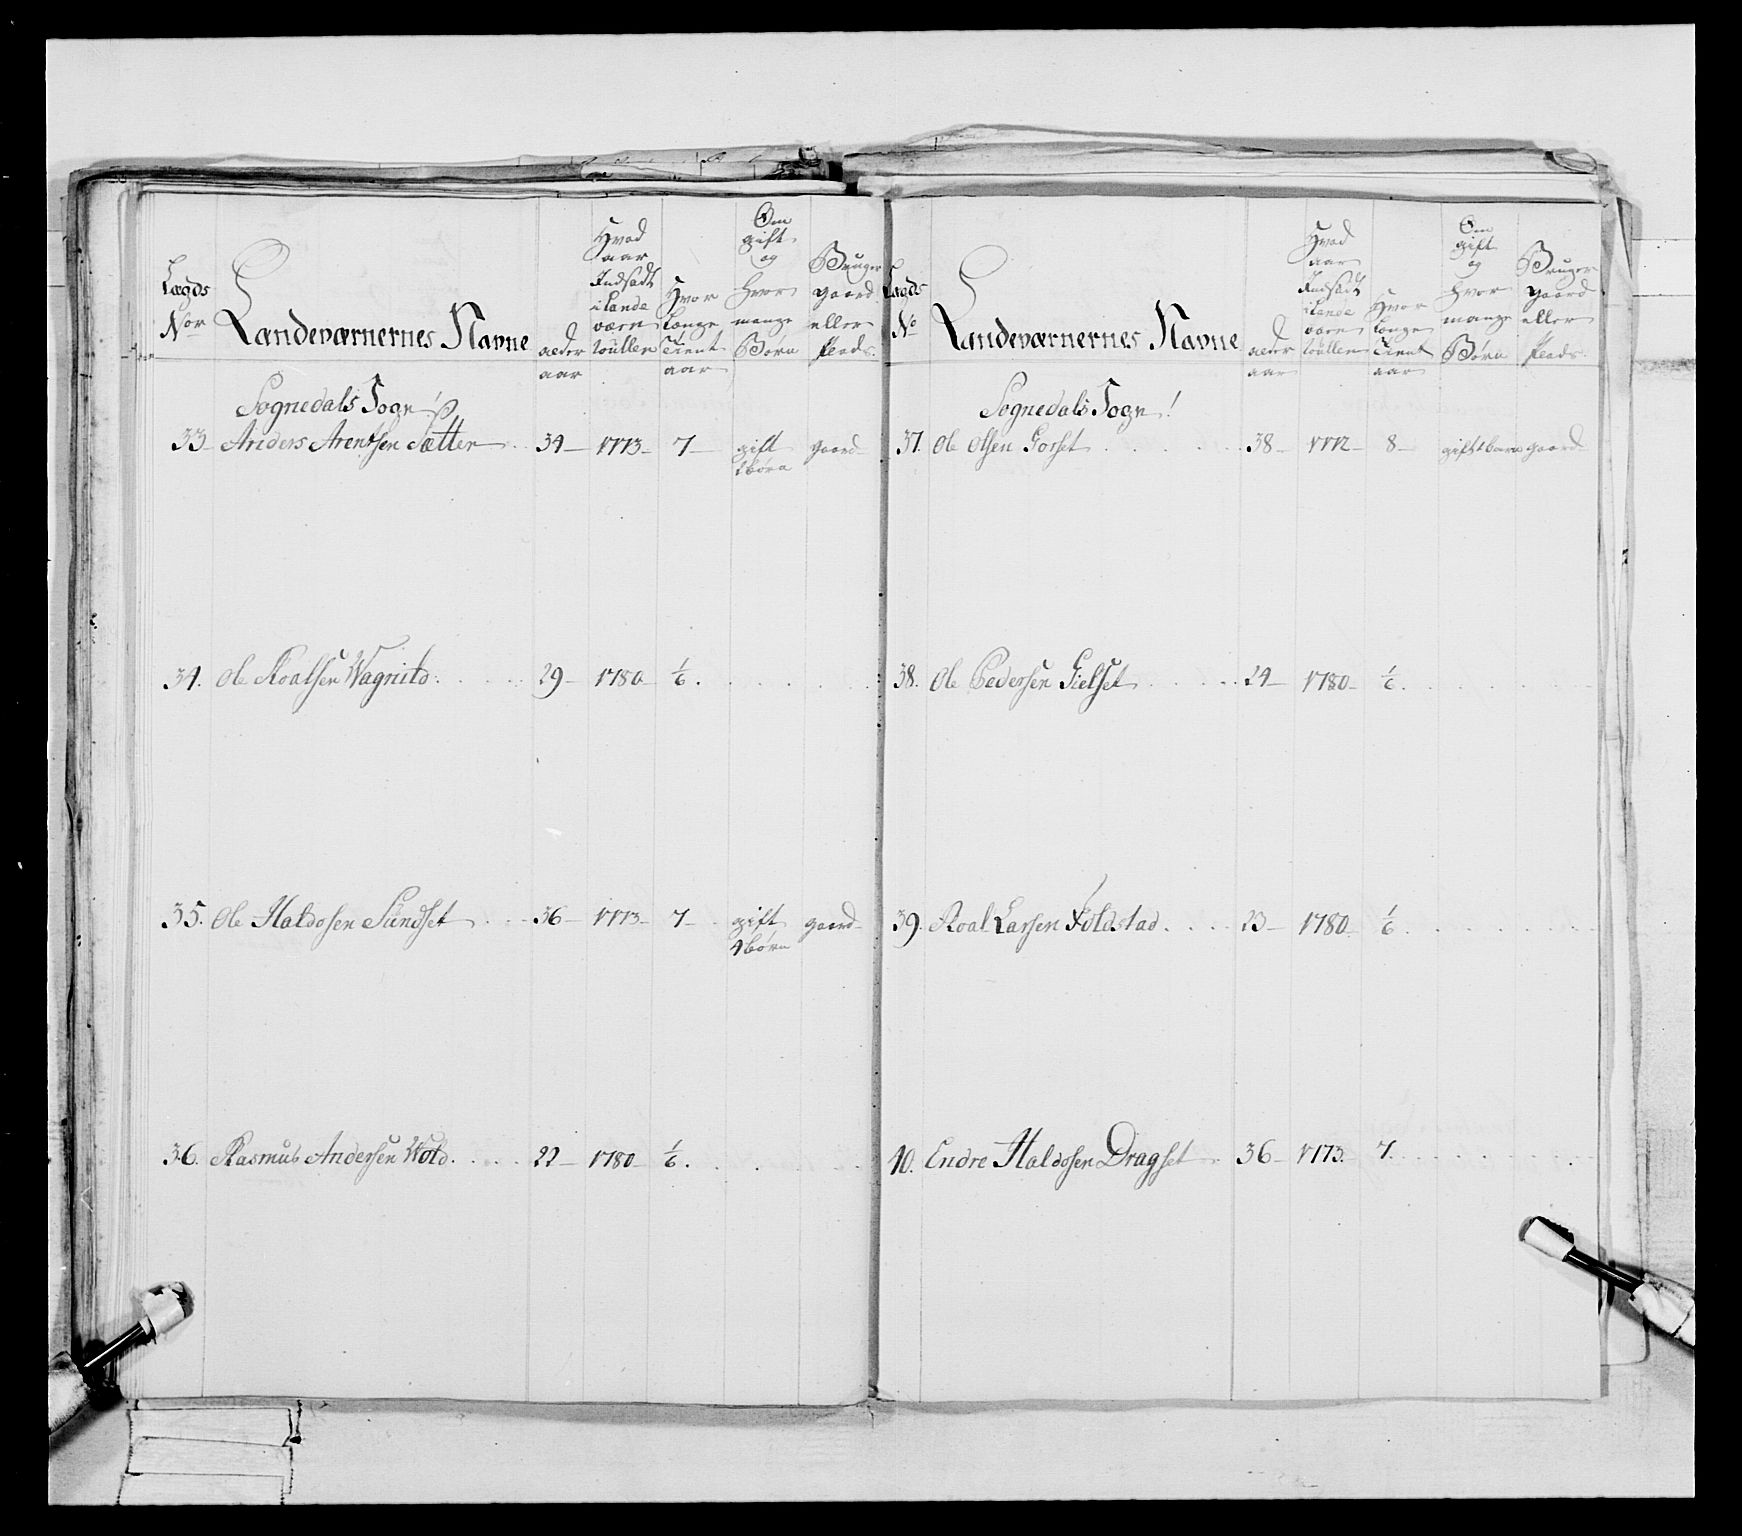 Lægds Nor
Landeværnernes Navne
alder aar
Hvad aar Indsadt i Lande værn Rullen
Hvor Længe Tient aar
Om gift og hvor mange Børn
Bruger gaard eller Plads.
Sognedals Sogn!
33 Anders Arentsen Sætter 34 1773 7 gift børn gaard
34. Ole Roalsen Wagnild 29 1780 1/6
35. Ole Haldosen Sundset 36 1773 7 gift 4 børn gaard
36. Rasmus Andersen Wold 22 1780 1/6
Lægds No
Landeværnernes Navne
alder aar
Hvad aar Indsadt i Lande værn Rullen
Hvor Længe Tient aar
Om gift og hvor mange Børn
Bruger gaard eller Plads.
Sognedals Sogn!
37. Ole Olsen Gorset 38 1772 8 gift 1 barn gaard
38. Ole Pedersen Gielset 24 1780 1/6
39. Roal Larsen Foldstad 23 1780 1/6
40. Endre Haldosen Dragset 36 1773 7